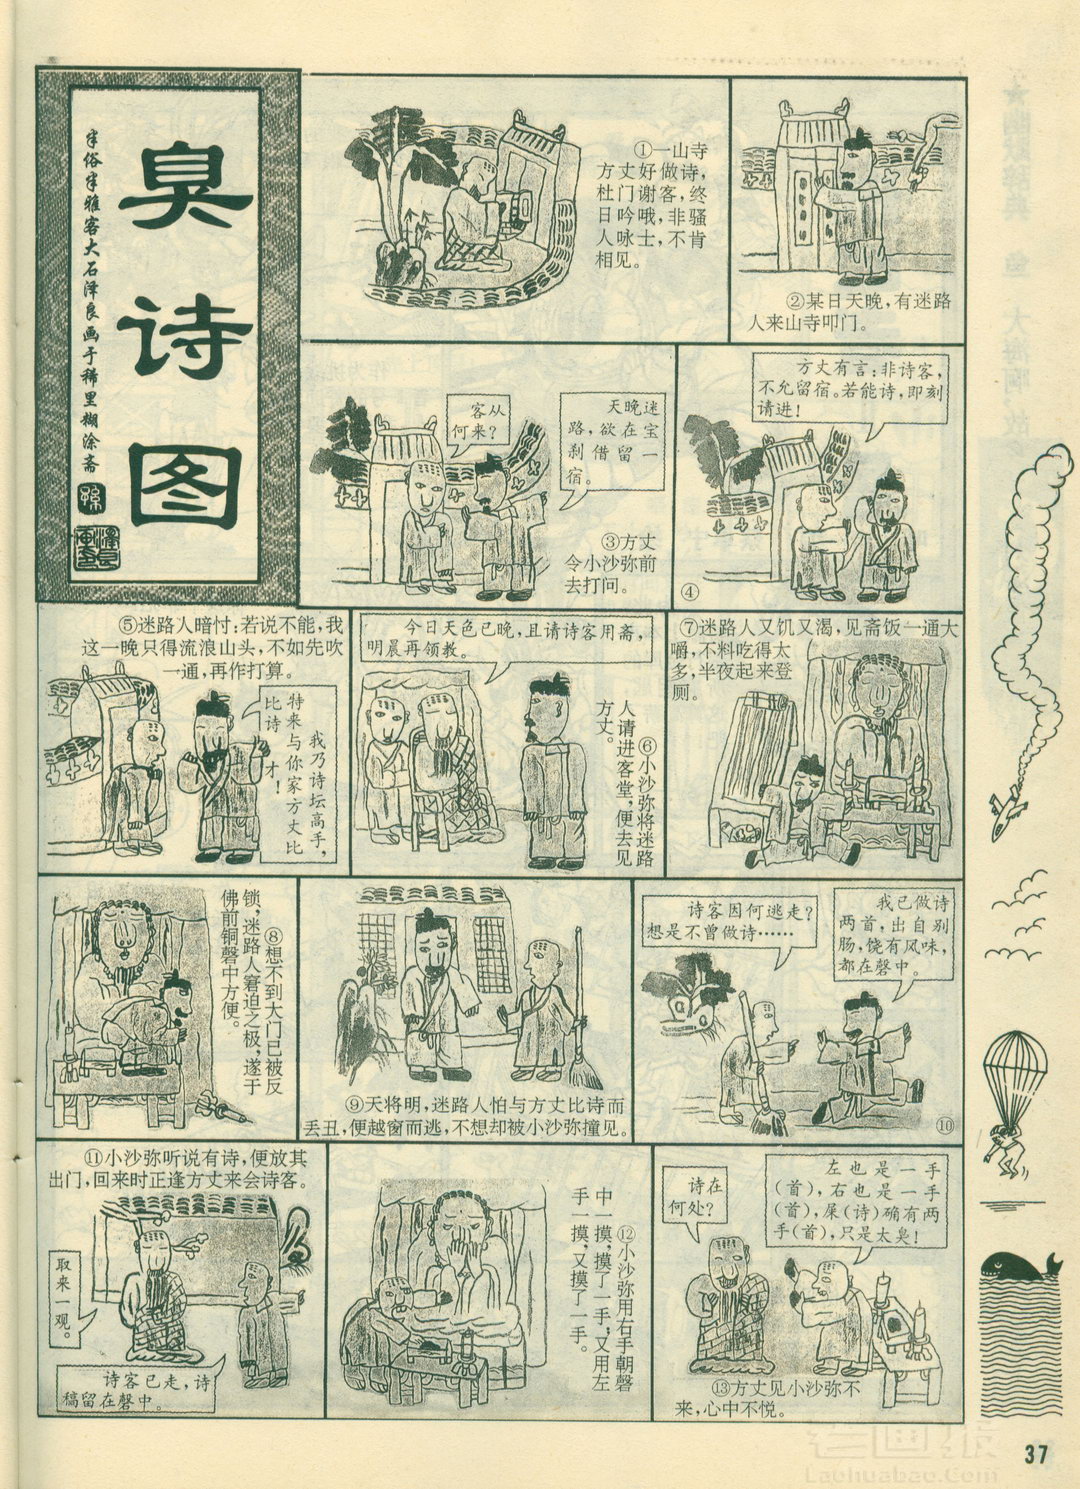 臭诗图
半俗半雅客大石泽良画于稀里糊涂斋
①一山寺
方丈好做诗，
杜门谢客，终
日吟哦，非骚
人咏士，不肯
相见。
②某日天晚，有迷路
人来山寺叩门。
客从
何来？
天晚迷
路，欲在宝
刹借留一
宿。
③方丈
令小沙弥前
去打问。
方丈有言：非诗客，
不允留宿。若能诗，即刻
请进！
④
⑤迷路人暗忖：若说不能，我
这一晚只得流浪山头，不如先吹
一通，再作打算。
我乃诗坛高手，
特来与你家方丈比
比诗才！
今日天色已晚，且请诗客用斋，
明晨再领教。
⑥小沙弥将迷路
人请进客堂，便去见
方丈。
⑦迷路人又饥又渴，见斋饭一通大
嚼，不料吃得太
多，半夜起来登
厕。
⑧想不到大门已被反
锁，迷路人窘迫之极，遂于
佛前铜磬中方便。
⑨天将明，迷路人怕与方丈比诗而
丢丑，便越窗而逃，不想却被小沙弥撞见。
诗客因何逃走？
想是不曾做诗……
我已做诗
两首，出自别
肠，饶有风味，
都在磬中。
⑩
⑪小沙弥听说有诗，便放其
出门，回来时正逢方丈来会诗客。
取来一观。
诗客已走，诗
稿留在磬中。
⑫小沙弥用右手朝磬
中一摸，摸了一手，又用左
手一摸，又摸了一手。
诗在
何处？
左也是一手
（首），右也是一手
（首），屎（诗）确有两
手（首），只是太臭！
⑬方丈见小沙弥不
来，心中不悦。
37
老画报
Laohuabao.Com